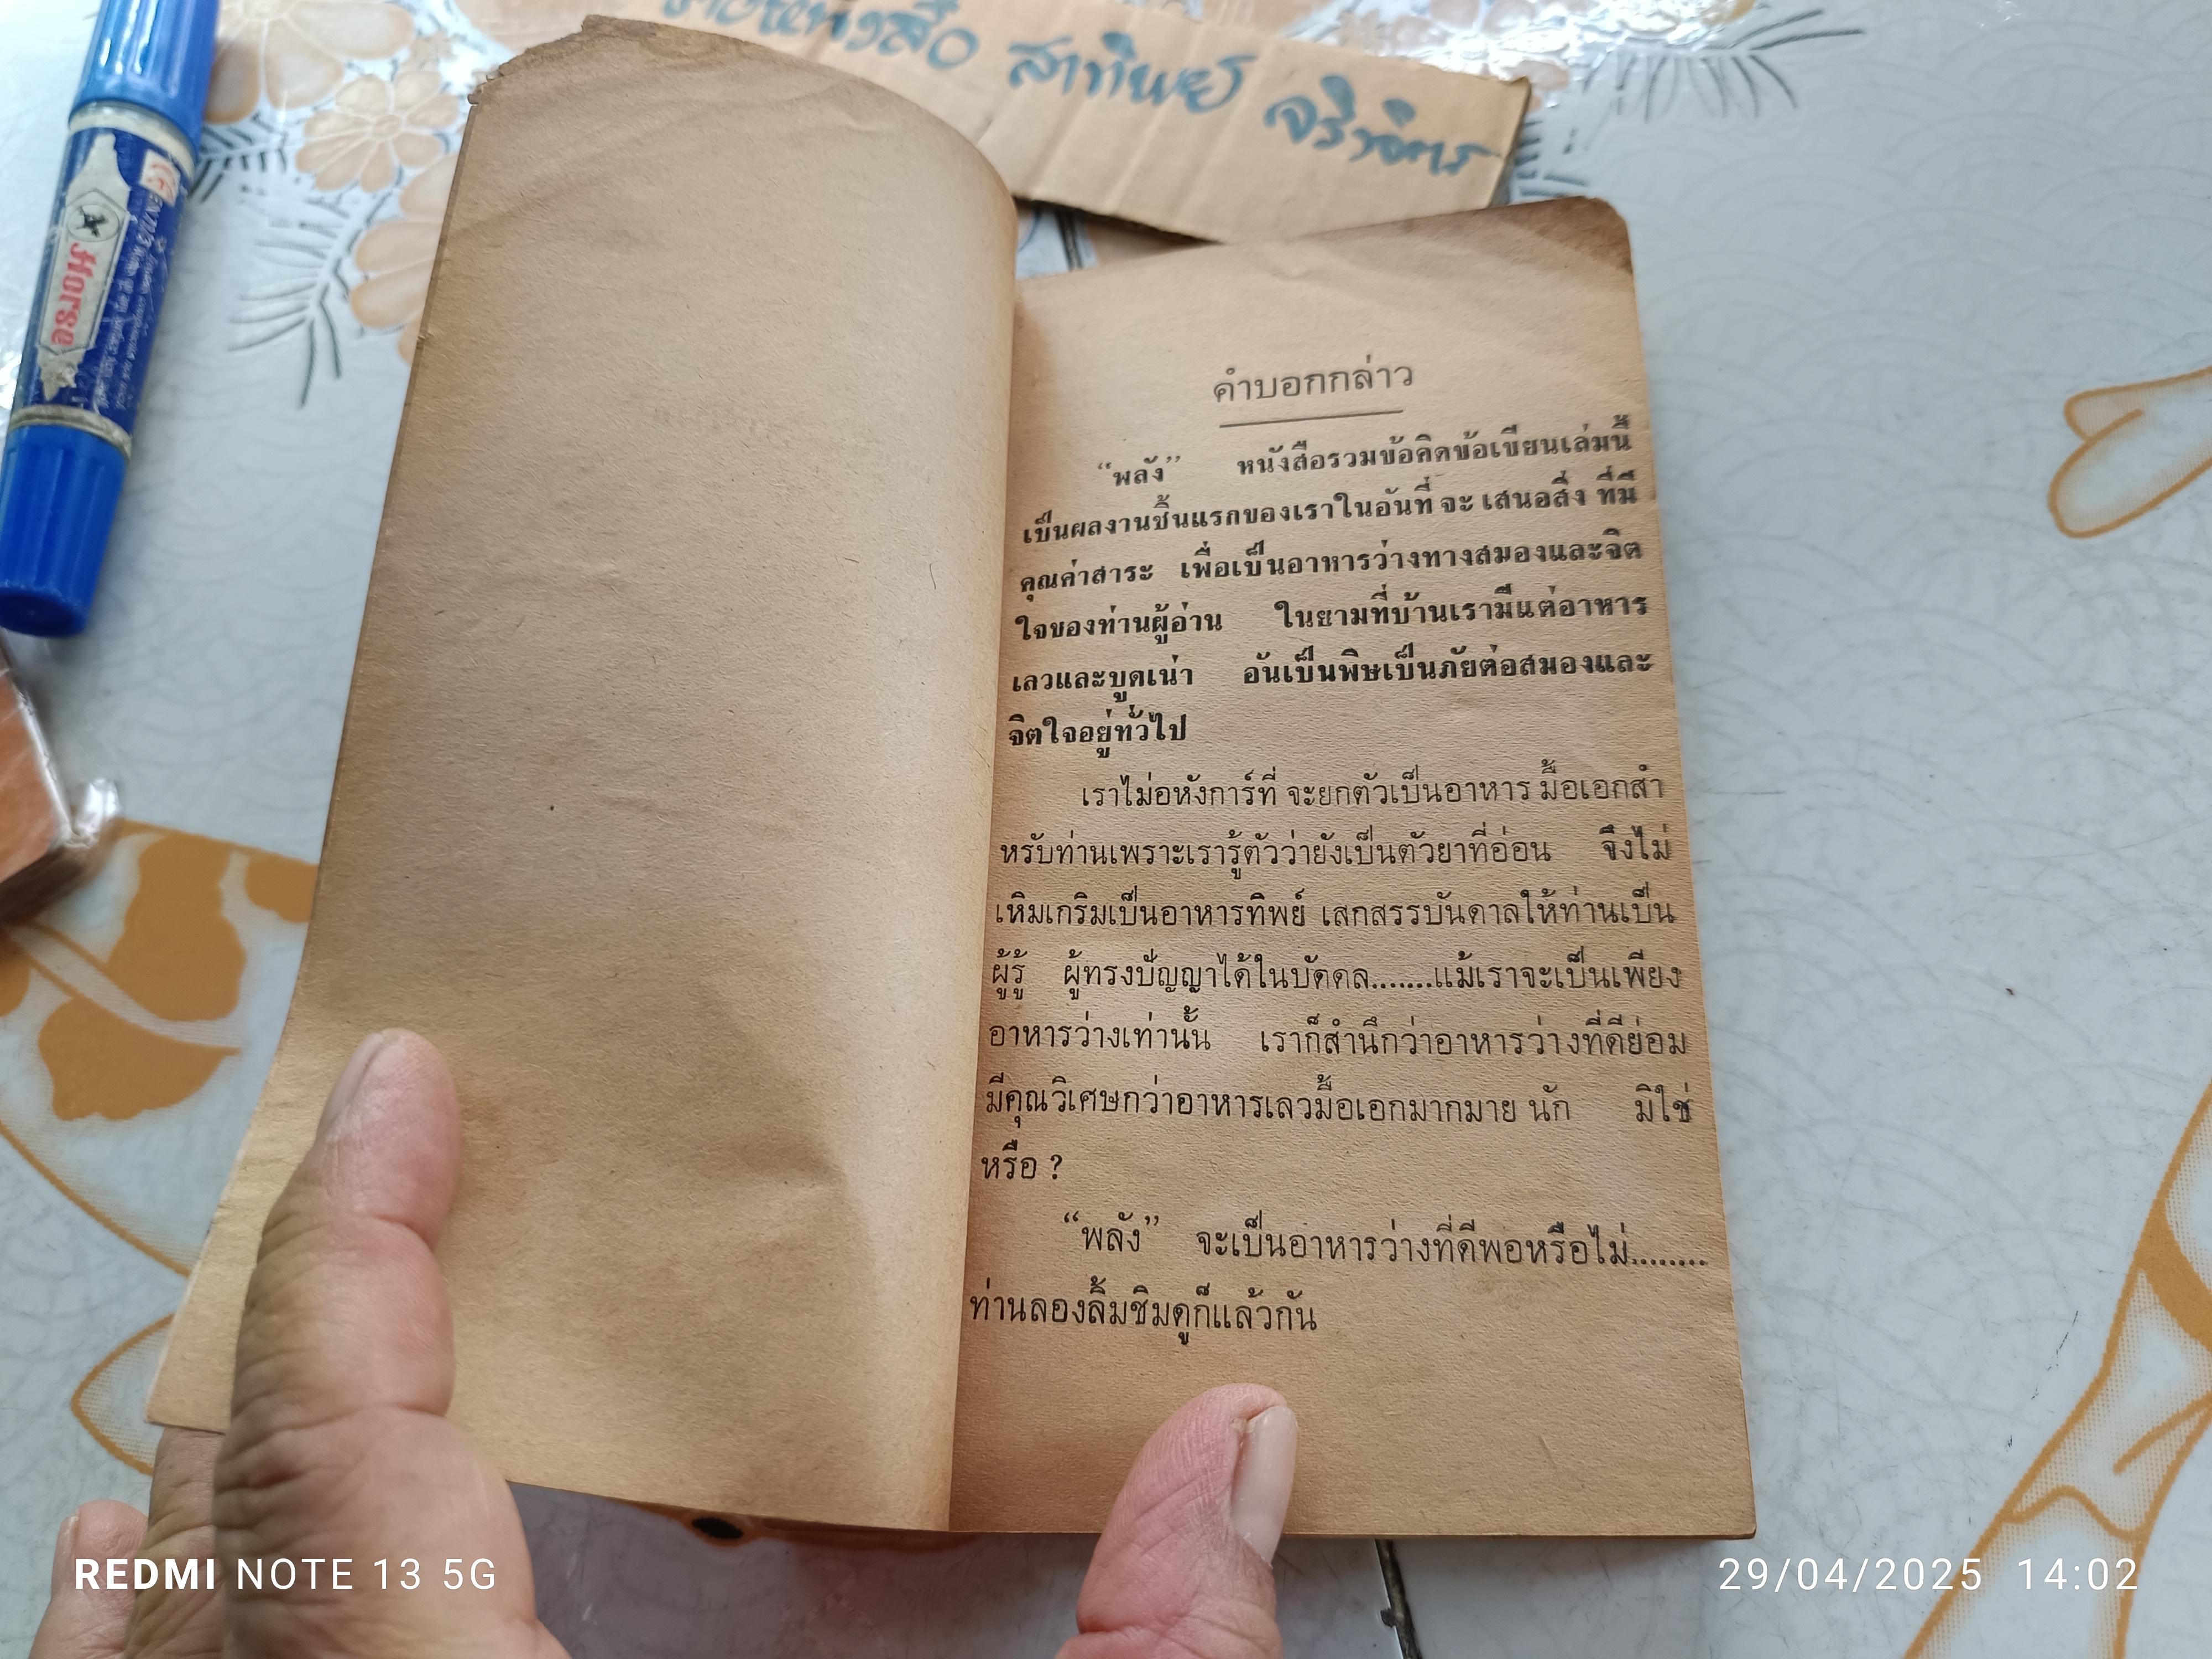 สาทิพย์
Horse
คำบอกกล่าว
“พลัง” หนังสือรวมข้อคิดข้อเขียนเล่มนี้
เป็นผลงานชิ้นแรกของเราในอันที่ จะ เสนอสิ่ง ที่มี
คุณค่าสาระ เพื่อเป็นอาหารว่างทางสมองและจิต
ใจของท่านผู้อ่าน ในยามที่บ้านเรามีแต่อาหาร
เลวและบูดเน่า อันเป็นพิษเป็นภัยต่อสมองและ
จิตใจอยู่ทั่วไป
เราไม่อหังการ์ที่ จะยกตัวเป็นอาหาร มื้อเอกสำ
หรับท่านเพราะเรารู้ตัวว่ายังเป็นตัวยาที่อ่อน จึงไม่
เหิมเกริมเป็นอาหารทิพย์ เสกสรรบันดาลให้ท่านเป็น
ผู้รู้ ผู้ทรงปัญญาได้ในบัดดล.......แม้เราจะเป็นเพียง
อาหารว่างเท่านั้น เราก็สำนึกว่าอาหารว่างที่ดีย่อม
มีคุณวิเศษกว่าอาหารเลวมื้อเอกมากมาย นัก มิใช่
หรือ ?
“พลัง” จะเป็นอาหารว่างที่ดีพอหรือไม่........
ท่านลองลิ้มชิมดูก็แล้วกัน
REDMI NOTE 13 5G
29/04/2025 14:02